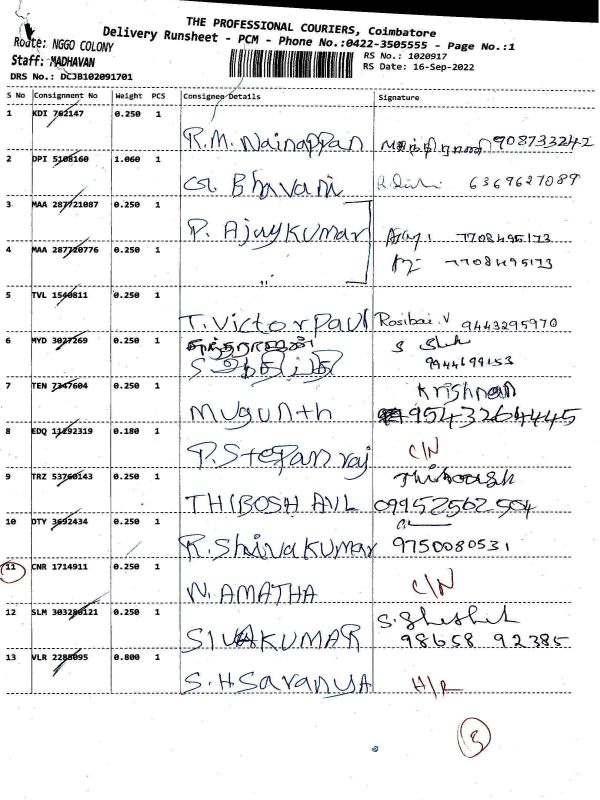 THE PROFESSIONAL COURIERS, Coimbatore
Delivery Runsheet - PCM - Phone No.:0422-3505555 - Page No.:1
Route: NGGO COLONY
Staff: MADHAVAN
RS No.: 1020917
RS Date: 16-Sep-2022
DRS No.: DCJB102091701
S No Consignment No Weight PCS Consignee Details Signature
1 KDI 762147 0.250 1
R.M. Nainappan 908733242
2 DPI 5108160 1.060 1
G. Bhavani 6369627089
3 MAA 287721087 0.250 1
P. Ajay Kumar Ajay 7708495173
4 MAA 287720776 0.250 1
7708495173
5 TVL 1540811 0.250 1
T. Victor Paul Rosibai. V 9443295970
6 MYD 3027269 0.250 1
S 9944699153
7 TEN 7347604 0.250 1 Krishnan
Mugunth 9543264445
8 EDQ 11292319 0.180 1
P. Stepan raj C/N
9 TRZ 53760143 0.250 1
THIBOSH AVL 09952562504
10 DTY 3692434 0.250 1
R. Shiva Kumar 9750080531
11 CNR 1714911 0.250 1
N. AMATHA C/N
12 SLM 303280121 0.250 1
SIVAKUMAR 98658 92385
13 VLR 2288095 0.800 1
S. H Saranya H/R
3